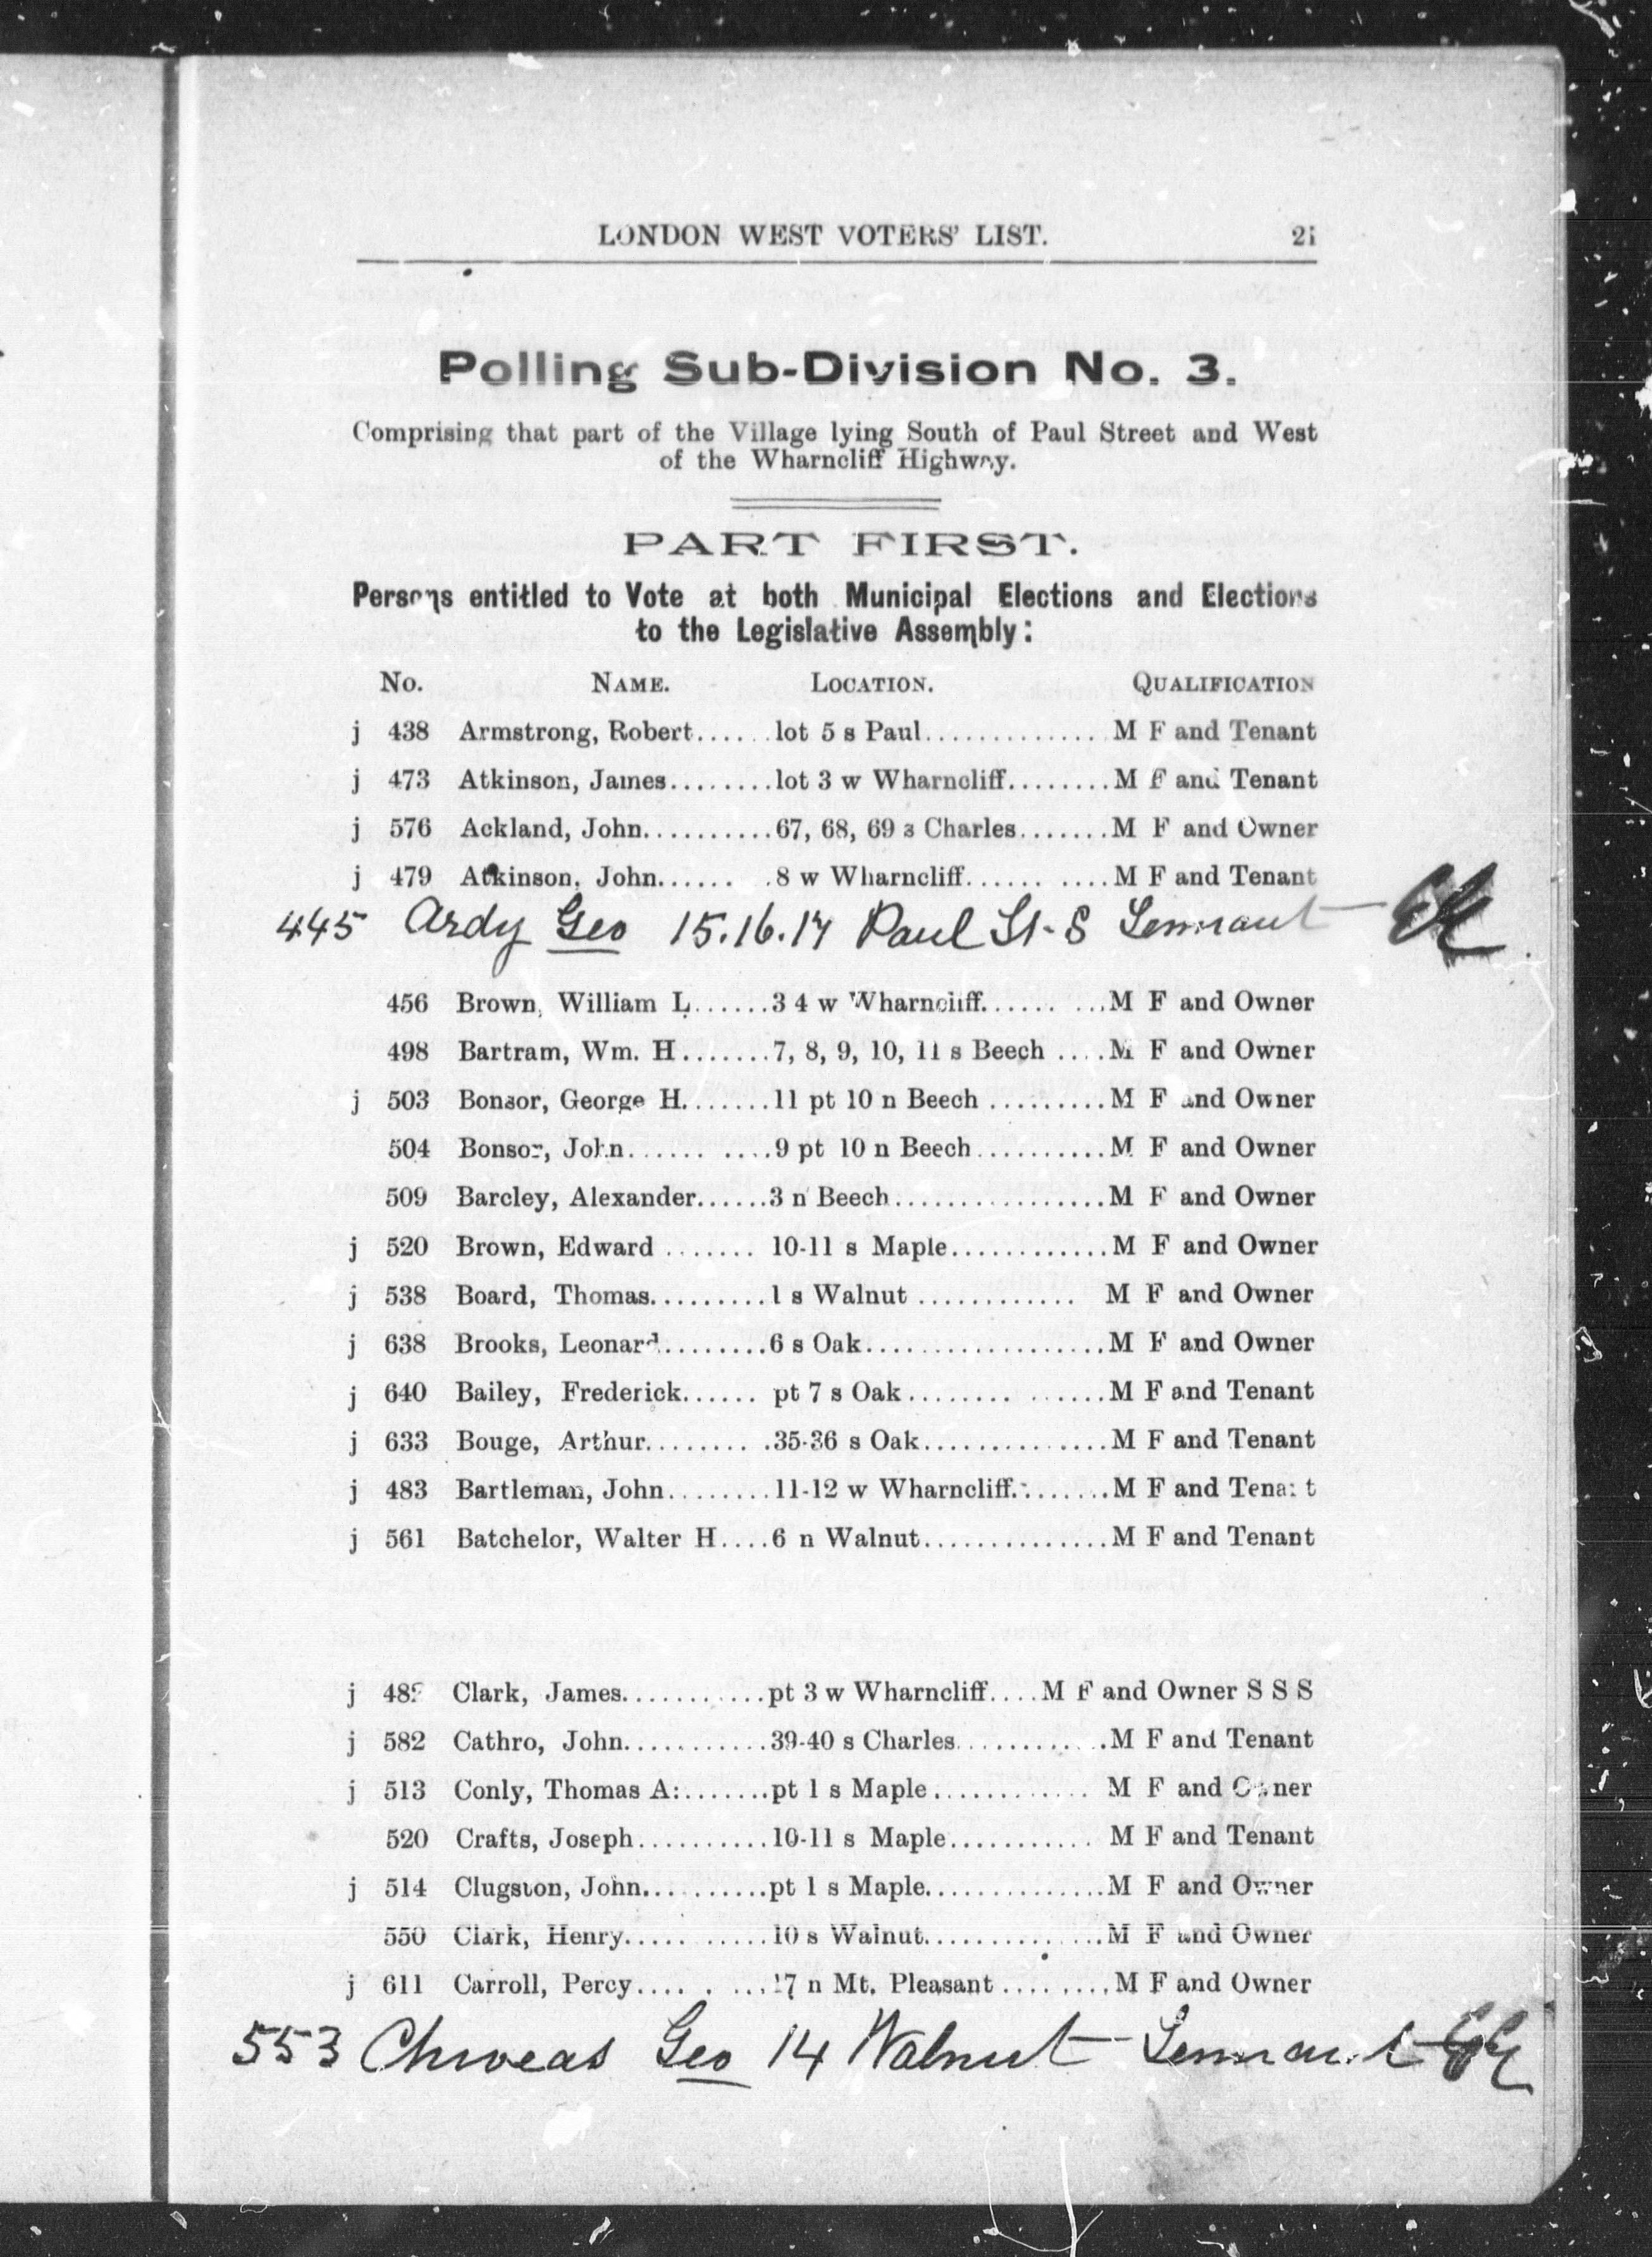 LONDON WEST VOTERS' LIST. 21
Polling Sub-Division No. 3.
Comprising that part of the Village lying South of Paul Street and West
of the Wharncliff Highway.
PART FIRST.
Persons entitled to Vote at both Municipal Elections and Elections
to the Legislative Assembly:
No. NAME. LOCATION. QUALIFICATION
j 438 Armstrong, Robert......lot 5 s Paul..............M F and Tenant
j 473 Atkinson, James........lot 3 w Wharncliff........M F and Tenant
j 576 Ackland, John..........67, 68, 69 s Charles.......M F and Owner
j 479 Atkinson, John...... .8 w Wharncliff...... ....M F and Tenant
445 Ardy Geo 15.16.17 Paul St. S Tennant
456 Brown, William L......3 4 w Wharncliff...... ...M F and Owner
498 Bartram, Wm. H.......7, 8, 9, 10, 11 s Beech ....M F and Owner
j 503 Bonsor, George H.......11 pt 10 n Beech .........M F and Owner
504 Bonsor, John...... ....9 pt 10 n Beech..........M F and Owner
509 Barcley, Alexander......3 n Beech................M F and Owner
j 520 Brown, Edward ....... 10-11 s Maple............M F and Owner
j 538 Board, Thomas.........1 s Walnut ............ M F and Owner
j 638 Brooks, Leonard.........6 s Oak..................M F and Owner
j 640 Bailey, Frederick...... pt 7 s Oak........ ......M F and Tenant
j 633 Bouge, Arthur........ .35-36 s Oak..............M F and Tenant
j 483 Bartleman, John........11-12 w Wharncliff........M F and Tenant
j 561 Batchelor, Walter H....6 n Walnut..............M F and Tenant
j Clark, James...........pt 3 w Wharncliff....M F and Owner S S S
j 582 Cathro, John...........39-40 s Charles...........M F and Tenant
j 513 Conly, Thomas A:.......pt 1 s Maple............ M F and Owner
520 Crafts, Joseph..........10-11 s Maple........... M F and Tenant
j 514 Clugston, John..........pt 1 s Maple..............M F and Owner
550 Clark, Henry..... .....10 s Walnut..............M F and Owner
j 611 Carroll, Percy.... . ... n Mt. Pleasant .........M F and Owner
553 Geo 14 Walnut Tennant